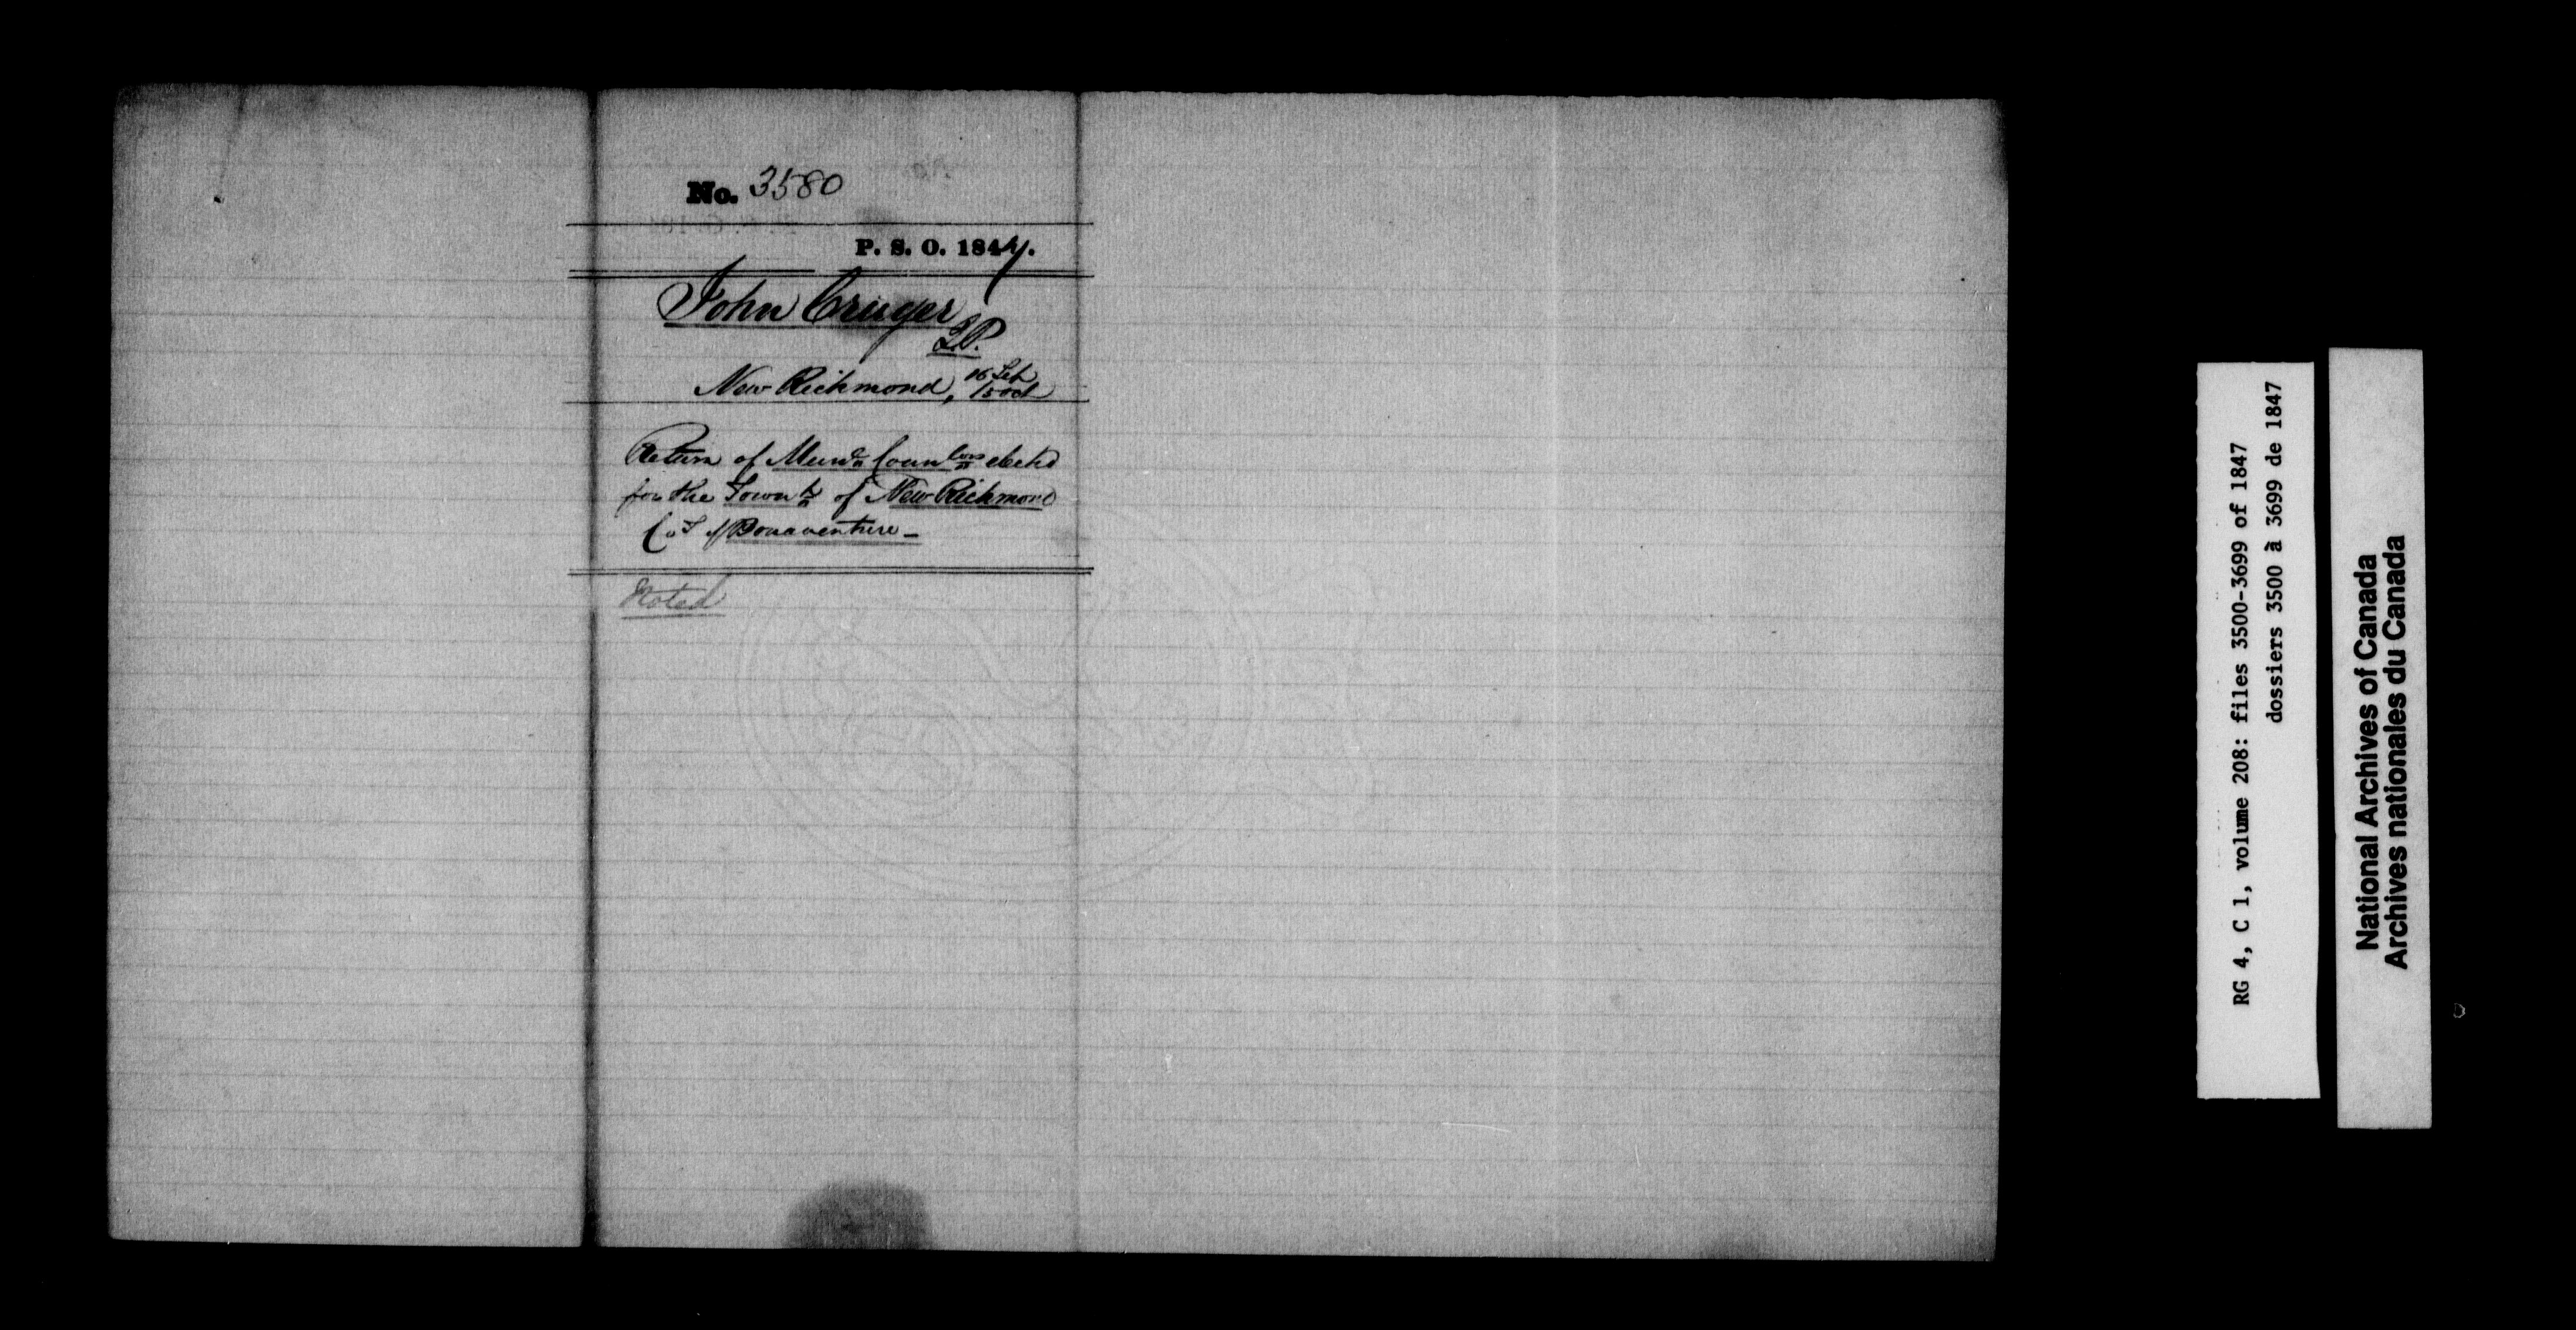 No. 3580
P. S. O. 1847.
John Cruger
J.P.
New Richmond, 16 Feb
15 Oct
Return of Munl. Counlors elected
for the Townp. of New Richmond
Coy of Bonaventure -
Noted
RG 4, C 1, volume 208: files 3500-3699 of 1847
dossiers 3500 à 3699 de 1847
National Archives of Canada
Archives nationales du Canada